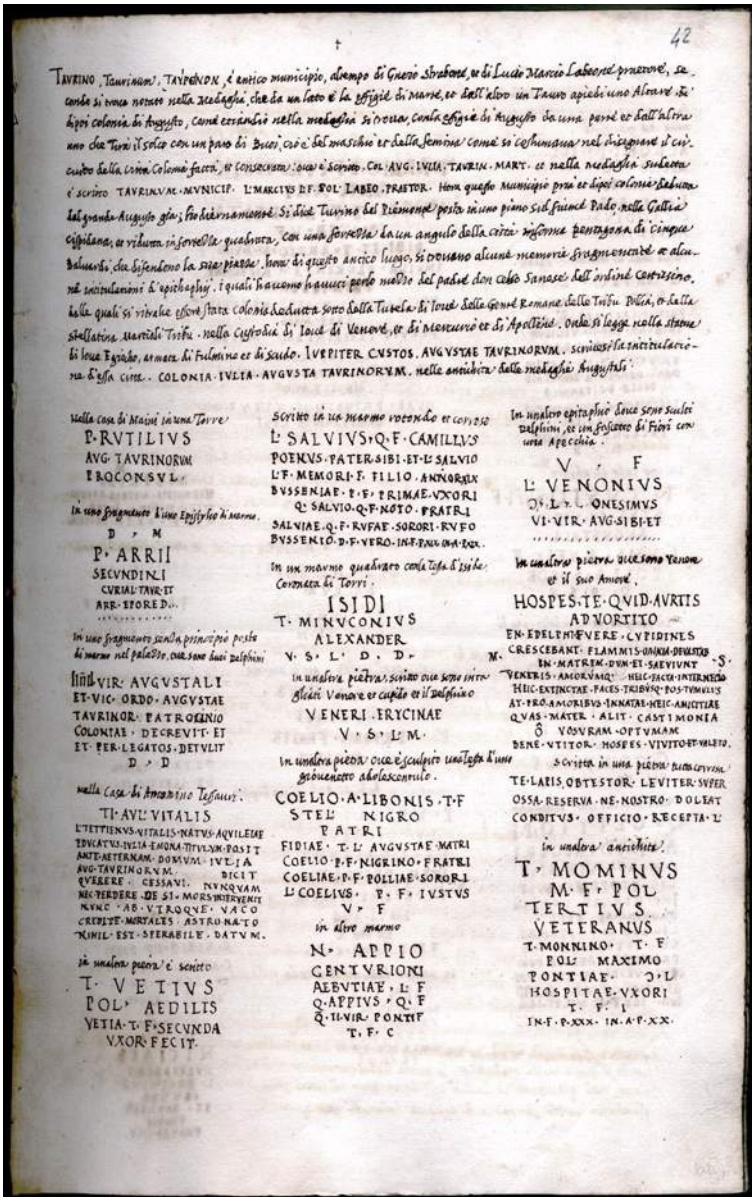 42
TAURINO, Taurinum, ΤΑΥΡΕΝΟΝ, è antico municipio, al tempo di Gneio Strabone, et di Lucio Marcio Labeone praetore, se,
condo si trova notato nella Medaglia, che da un lato è la effigie di Marte, et dall'altro un Tauro a piedi uno Altare. Et
dipoi colonia di Augusto, come etiandio nella medaglia si trova, con la effigie di Augusto da una parte et dall'altra
uno che Tira il solco con un paro di Buoi, cioè del maschio et della femina come si costumava nel disegnare il cir,
cuito della città Colonia fatta, et consecrata: ove è scritto. COL AUG. IULIA. TAURIN. MART. et nella medaglia sudetta
è scritto TAURINUM. MUNICIP. L. MARCIUS D.F. POL. LABEO. PRAETOR. Hora questo Municipio pria et dipoi colonia deduta
dal grande Augusto già; hodiernamente si dice Turino del Piemonte posta in uno piano sul fiume Pado, nella Gallia
Cispadana, et riduta in fortezza quadrata, con una fortezza da un angulo della città in forma pentagona di cinque
Baluardi, che difendono la sua piazza. hora di questo antico luogo, si trovano alcune memorie fragmentate et alcu,
ne intitulationi d'epithaphij, i quali havemo havuti per lo mezzo del padre don Celso Sanese dell'ordine Certosino,
dalle quali si ritrahe essere stata Colonia deducta sotto dalla Tutela di Iove delle Gente Romane delle Tribu Pollia, et dalla
Stellatina Martiali Tribu. nella Custodia di Iove di Venere, et di Mercurio et di Apolline. Onde si legge nella statua
di Iove Egiocho, armata di fulmino et di scudo. IUPITER CUSTOS. AUGUSTAE TAURINORUM. scrivesi la intitulatio,
ne d'essa città. COLONIA. IULIA. AUGUSTA TAURINORUM. nelle antichità delle medaglie Augustali.
Nella Casa di Maini in una Torre
P. RUTILIUS
AUG. TAURINORUM
PROCONSUL.
in uno fragmento d'uno Epistylio di marmo.
D. M
P. ARRII
SECUNDINI
CURIAL TAUR. ET
ARR. EPORED..
in uno fragmento senza principio posto
di marmo nel palazzo, ove sono duoi Delphini
IIIIIIVIR AUGUSTALI
ET. VIC. ORDO. AUGUSTAE
TAURINOR. PATROCINIO
COLONIAE. DECREVIT. ET
ET. PER. LEGATOS. DETULIT
D. D
nella Casa di Antonino Tessauri.
TI. AUL. VITALIS
L. TETTIENUS. VITALIS. NATUS. AQUILEIAE
EDUCATUS. IULIA. EMONA. TITULUM. POSIT
ANTE. AETERNAM. DOMUM. IULIA
AUG. TAURINORUM. DICIT
QUERERE. CESSAVI. NUNQUAM
NEC. PERDERE. DE SI. MORS INTERVENIT
NUNC. AB. UTROQUE. VACO
CREDITE. MORTALES. ASTRO. NATO
NIHIL. EST. SPERABILE. DATUM.
in unaltra pietra è scritto
T. VETIUS
POL. AEDILIS
VETIA. T. F. SECUNDA
UXOR. FECIT.
Scritto in un marmo rotondo et corroso
L. SALVIUS. Q. F. CAMILLUS
POENUS. PATER. SIBI. ET. L. SALVIO
L. F. MEMORI. F. FILIO. ANNOR. XIX
BUSSENIAE. P. F. PRIMAE. UXORI
Q. SALVIO. Q. F. NOTO. FRATRI
SALVIAE. Q. F. RUFAE. SORORI. RUFO
BUSSENIO. D. F. VERO.
In un marmo quadrato con la Testa d'Iside
Coronata di Torri.
ISIDI
T. MINUCONIUS
ALEXANDER
V. S. L. D. D. M.
in unaltra pietra, scritto ove sono intagliati Venere et Cupido et il Delphino
VENERI. ERYCINAE
V. S. L. M.
In unaltra pietra ove è sculpito una Testa d'uno
giovenetto adolescentulo.
COELIO. A. LIBONIS. T. F
STEL. NIGRO
PATRI
FIDIAE. T. L. AUGUSTAE. MATRI
COELIO. P. F. NIGRINO. FRATRI
COELIAE. P. F. POLLIAE. SORORI
L. COELIUS. P. F. IUSTUS
V. F
in altro marmo
N. APPIO
CENTURIONI
AEBUTIAE. L. F
Q. APPIUS. Q. F
Q. II. VIR. PONTIF
T. F. C
In unaltro epitaphio dove sono sculpti
Delphini, et un fascetto di Fiori con
una Apecchia.
V. F
L. VENONIUS
Ɔ. L. L. ONESIMUS
VI. VIR. AUG. SIBI. ET
In unaltra pietra ove sono Venere
et il suo Amore.
HOSPES. TE. QUID. AURTIS
ADVORTITO
EN. EDELPHI FUERE. CUPIDINES
CRESCEBANT. FLAMMIS. OMNIA. DEVASTAB
EN. MATREM. DUM. ET. SAEVIUNT. S.
VENERIS. AMORUMQ. HEIC. FACTA. INTERNECIO
HEIC. EXTINCTAE. FACES. TRIBUSQ. POS. TUMULIS
AT. PRO. AMORIBUS. INNATAE. HEIC. AMICITIAE
QUAS. MATER. ALIT. CASTIMONIA
Ô VOSURAM. OPTUMAM
BENE. UTITOR. HOSPES. VIVITO. ET. VALETO.
Scritta in una pietra tutta corrosa
TE. LAPIS. OBTESTOR. LEVITER. SUPER
OSSA. RESERVA. NE. NOSTRO. DOLEAT
CONDITUS. OFFICIO. RECEPTA. L
in unaltra antichità.
T. MOMINUS
M. F. POL
TERTIUS
VETERANUS
T. MONNINO. T. F
POL. MAXIMO
PONTIAE. Ɔ. L
HOSPITAE. UXORI
T. F. I
IN. F. P. XXX. IN. A. P. XX.